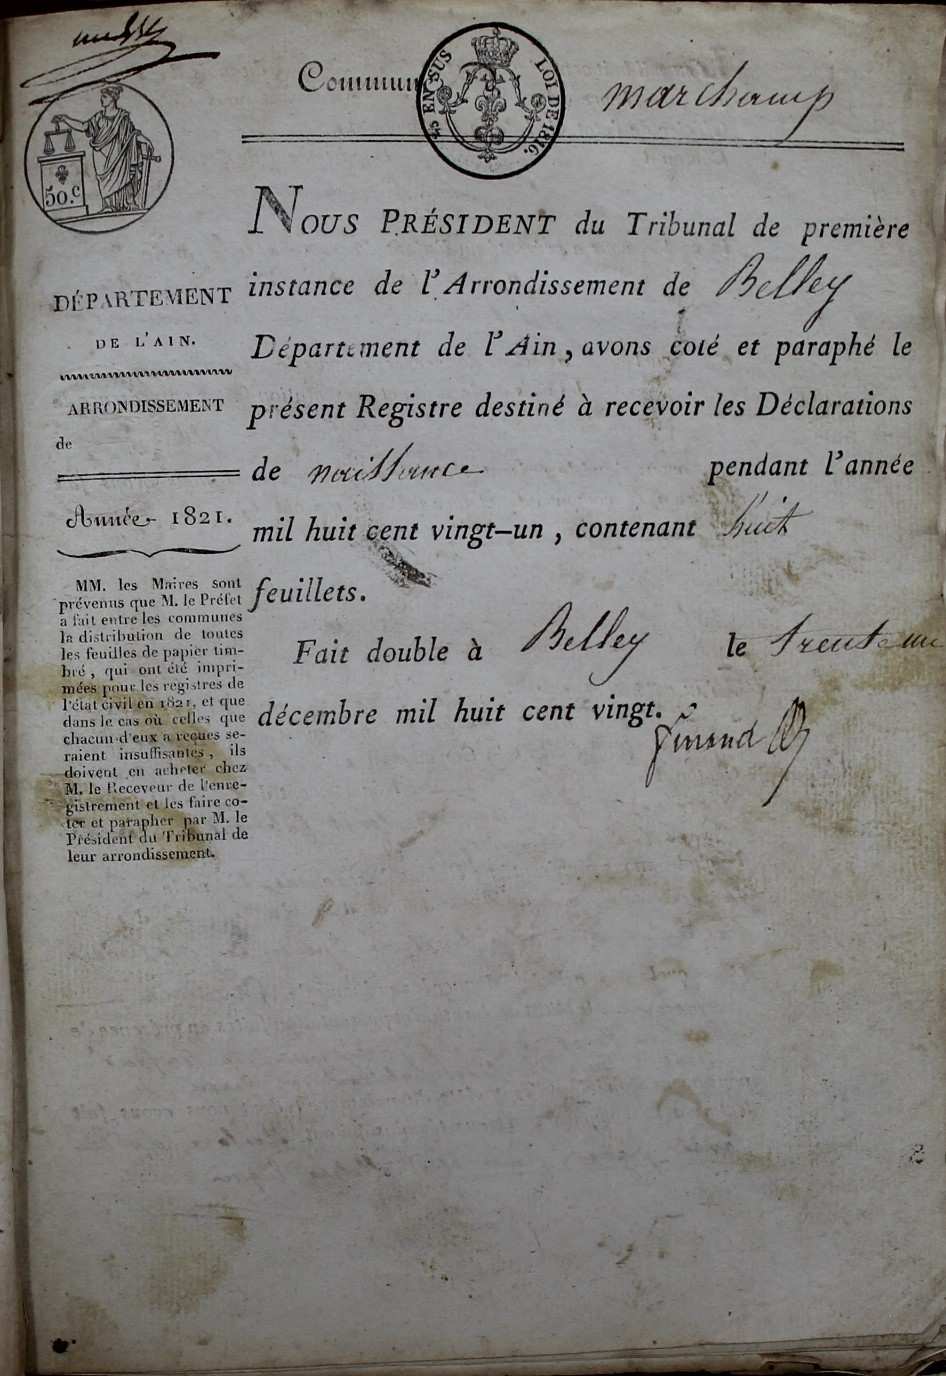 Commune marchamp
25 EN SUS LOI DE 1816.
50.c
DÉPARTEMENT
DE L'AIN.
ARRONDISSEMENT
de
Année 1821.
MM. les Maires sont
prévenus que M. le Préfet
a fait entre les communes
la distribution de toutes
les feuilles de papier tim-
bré, qui ont été impri-
mées pour les registres de
l'état civil en 1821, et que
dans le cas où celles que
chacun d'eux a reçues se-
raient insuffisantes, ils
doivent en acheter chez
M. le Receveur de l'enre-
gistrement et les faire co-
ter et parapher par M. le
Président du Tribunal de
leur arrondissement.
NOUS PRÉSIDENT du Tribunal de première
instance de l'Arrondissement de Belley
Département de l'Ain, avons coté et paraphé le
présent Registre destiné à recevoir les Déclarations
de naissance pendant l'année
mil huit cent vingt-un, contenant huit
feuillets.
Fait double à Belley le trente un
décembre mil huit cent vingt.